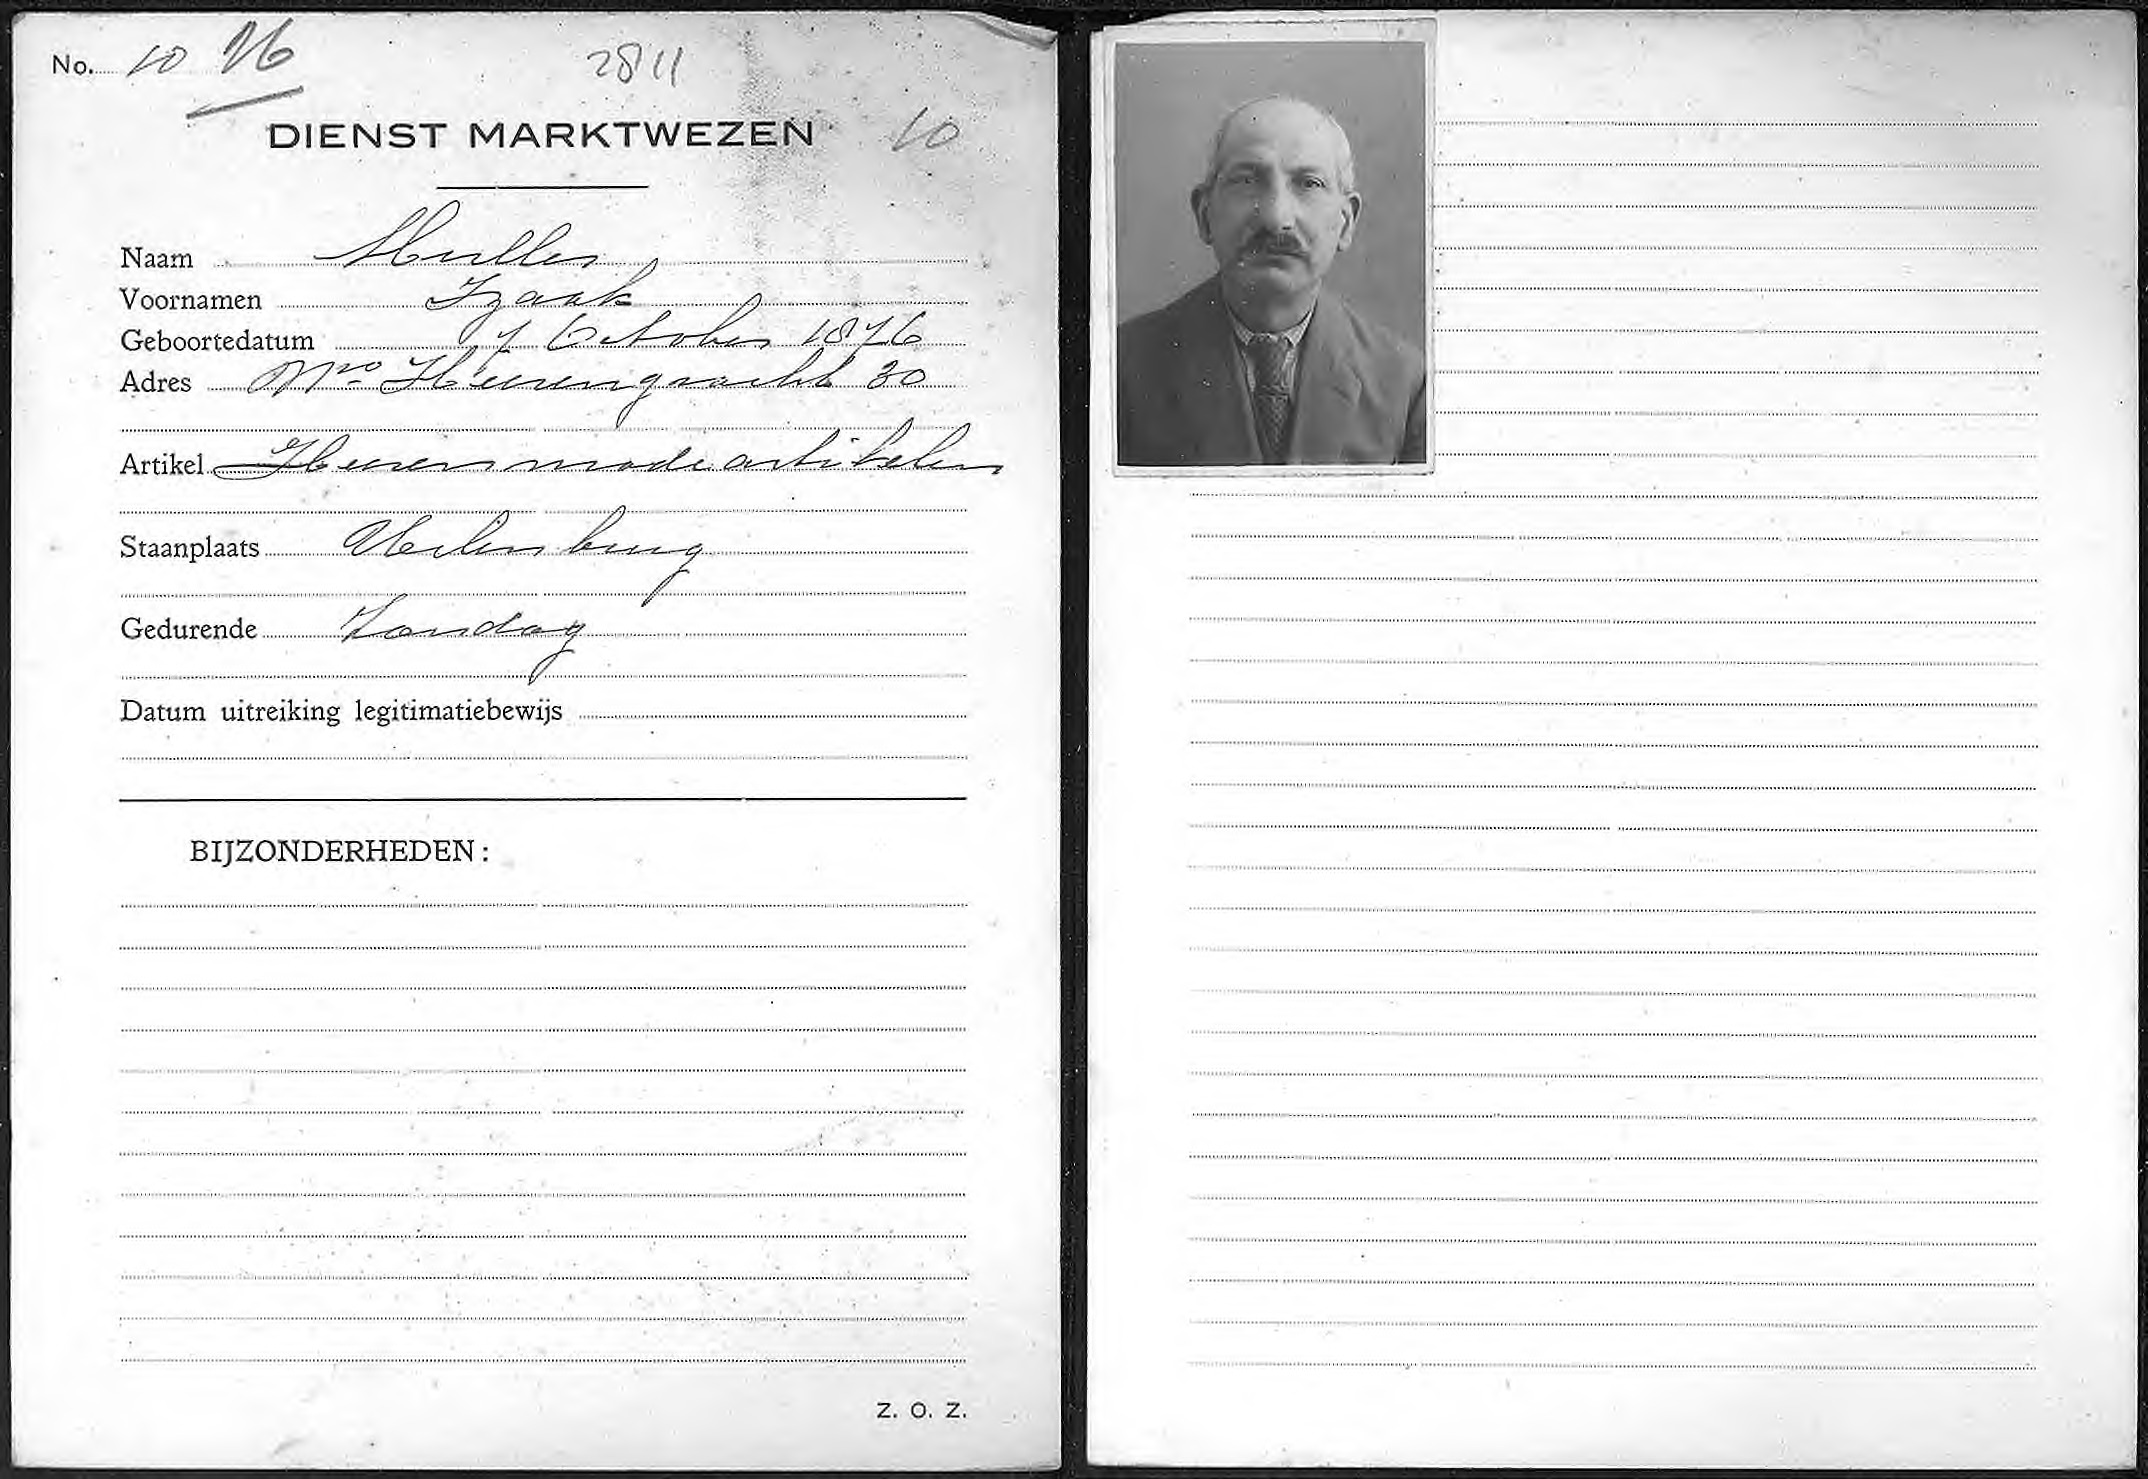 No. 10 26
2811
DIENST MARKTWEZEN 10
Naam Muller
Voornamen Izaak
Geboortedatum 7 October 1876
Adres Nwe Heerengracht 30
Artikel Heerenmodeartikelen
Staanplaats Uilenburg
Gedurende Zondag
Datum uitreiking legitimatiebewijs
BIJZONDERHEDEN:
Z. O. Z.